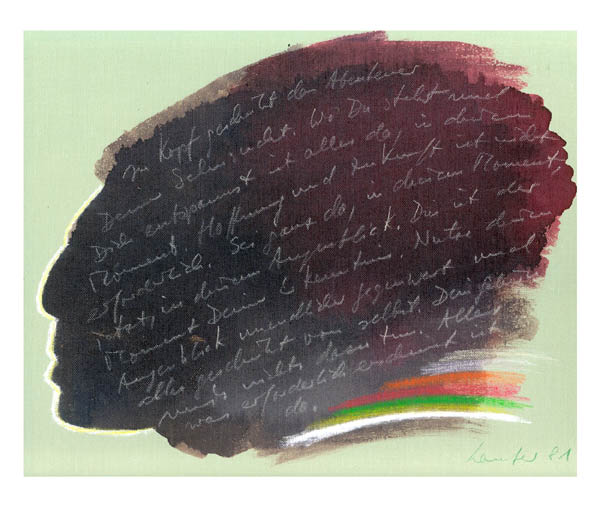 Im Kopf geschieht das Abenteuer
Deiner Sehnsucht. Wo Du stehst und
Dich entspannst ist alles da, in diesem
Moment. Hoffnung und Zukunft ist nicht
erforderlich. Sei ganz da, in diesem Moment,
in diesem Augenblick. Das ist der
Moment Deiner Erkenntnis. Nutze diesen
Augenblick unendlicher Gegenwart und
alles geschieht von selbst. Du
nichts dazu tun. Alles
was erforderlich ist
da.
81